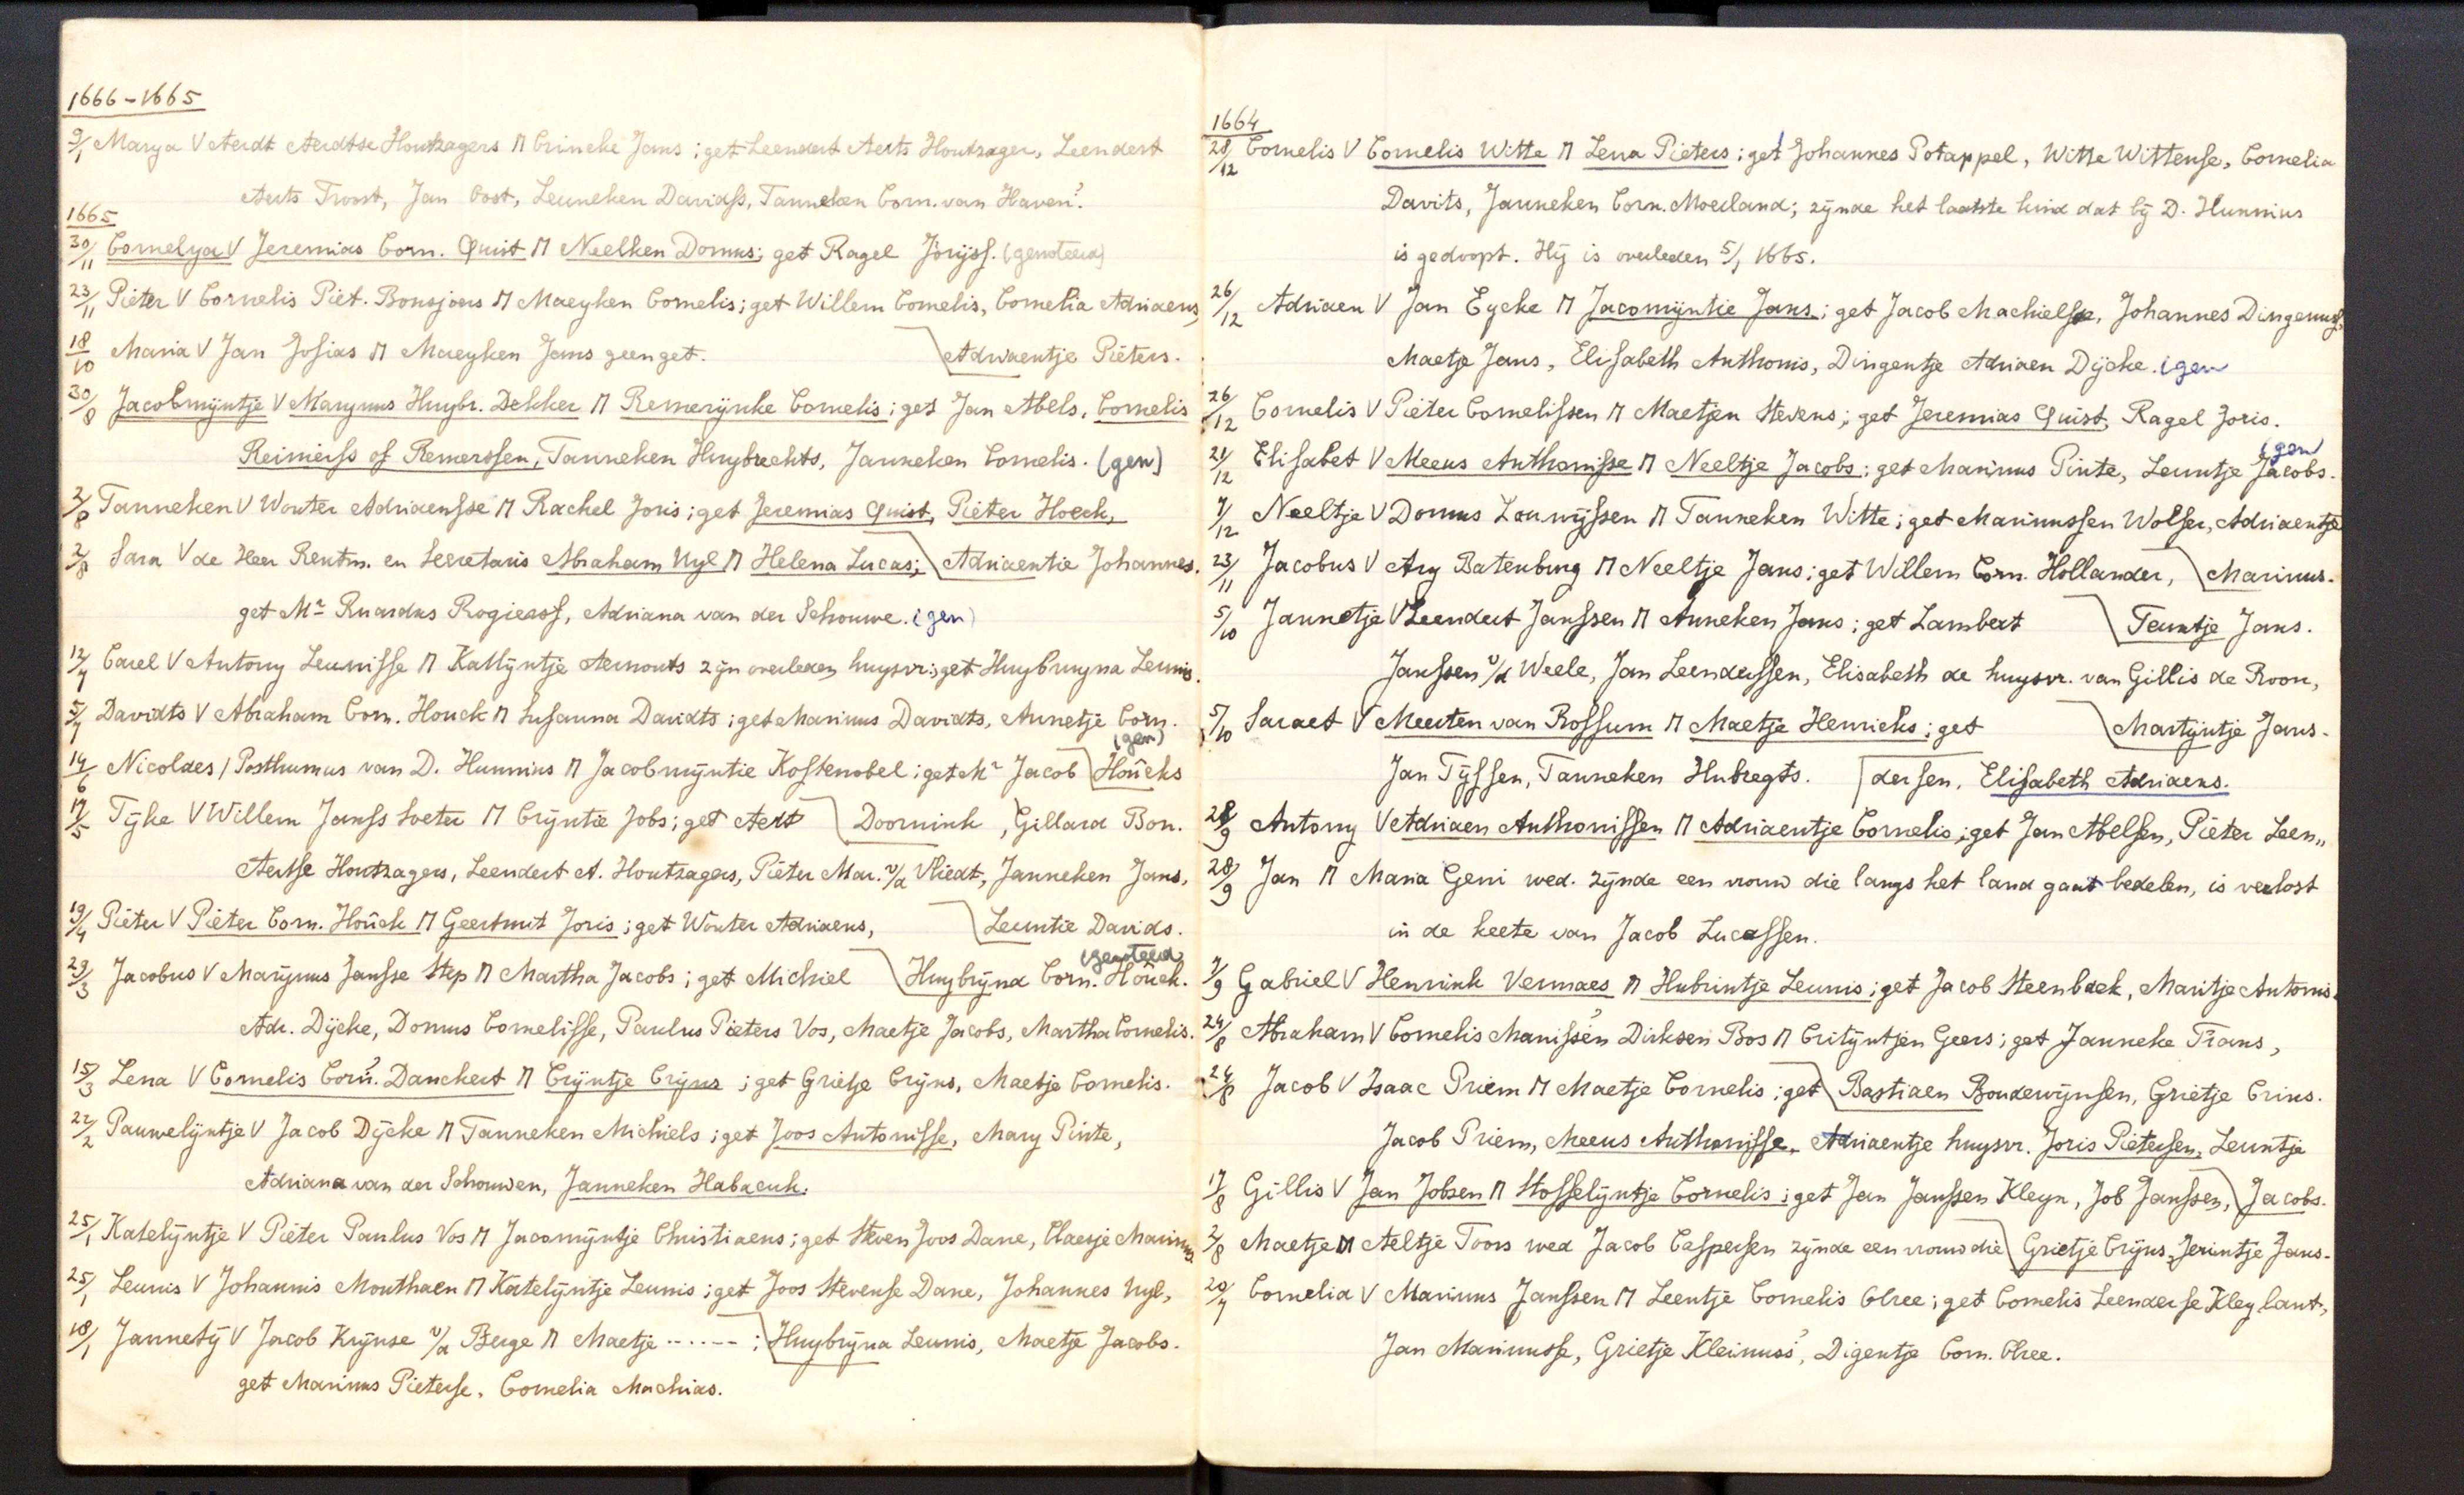 1666-1665
9/1 Marya V Aerdt Aerdtse Houtzagers M Crineke Jans; get Leendert Aerts Houtzager, Leendert
Aerts Troost, Jan Oost, Leuneken Davidss, Tanneken Corn. van Haven?
1665
30/11 Cornelya V Jeremias Corn. Quist M Neelken Domus; get Ragel Jorijss. (genoteerd)
23/11 Pieter V Cornelis Piet. Bonsjoers M Maeyken Cornelis; get Willem Cornelis, Cornelia Adriaens,
18/10 Maria V Jan Josias M Maeyken Jans geen get. \ Adriaentje Pieters.
30/8 Jacobmijntje V Marynus Huybr. Dekker M Remerijnke Cornelis; get Jan Abels, Cornelis
Reimeiss of Remerssen, Tanneken Huybrechts, Janneken Cornelis. (gen)
2/8 Tanneken V Wouter Adriaensse M Rachel Joris; get Jeremias Quist, Pieter Hoeck,
2/8 Sara V de Heer Rentm. en Secretaris Abraham Uyl M Helena Lucas; \ Adriaentie Johannes.
get Mr Ruardus Rogierss, Adriana van der Schouwe. (gen)
12/7 Carel V Antony Leunisse M Katlijntje Aernouts zijn overleden huysvr; get Huybruyna Leunis.
5/7 Davidts V Abraham Corn. Houck M Susanna Davidts; get Marinus Davidts, Annetje Corn.
(gen)
14/6 Nicolaes / Posthumus van D. Hunnius M Jacobmijntie Kostenobel; get Mr Jacob \ Houcks
17/5 Tijke V Willem Janss Soeter M Crijntie Jobs; get Aert \ Doornink, Gillard Bon.
Aertse Houtzagers, Leendert A. Houtzagers, Pieter Mar. v/d Vliedt, Janneken Jans,
19/4 Pieter V Pieter Corn. Houck M Geertruit Joris; get Wouter Adriaens, \ Leuntie Davids.
(genoteerd
29/3 Jacobus V Marijnus Jansse Step M Martha Jacobs; get Michiel \ Huybrijna Corn. Houck.
Adr. Dijcke, Domus Cornelisse, Paulus Pieters Vos, Maetje Jacobs, Martha Cornelis.
15/3 Lena V Cornelis Corn?. Danckert M Crijntje Crijns; get Grietje Crijns, Maetje Cornelis.
22/2 Pauwelijntje V Jacob Dijcke M Tanneken Michiels; get Joos Antonisse, Mary Pinte,
Adriana van der Schouwen, Janneken Habacuk.
25/1 Katelijntje V Pieter Paulus Vos M Jacomijntje Christiaens; get Steven Joos Dane, Claesje Marinus
25/1 Leunis V Johannis Mouthaen M Katelijntje Leunis; get Joos Stevense Dane, Johannes Uyl,
18/1 Jannetij V Jacob Krijnse v/d Berge M Maetje ......; \ Huybrijna Leunis, Maetje Jacobs.
get Marinus Pieterse, Cornelia Machias.
1664
28/12 Cornelis V Cornelis Witte M Lena Pieters; get Johannes Potappel, Witte Wittense, Cornelia
Davits, Janneken Corn. Moerland; zijnde het laatste kind dat bij D. Hunnius
is gedoopt. Hij is overleden 5/1 1665.
26/12 Adriaen V Jan Eycke M Jacomijntie Jans; get Jacob Machielse, Johannes Dingenuss,
Maetje Jans, Elisabeth Anthonis, Dingentje Adriaen Dijcke. (gen
26/12 Cornelis V Pieter Cornelissen M Maetjen Stevens; get Jeremias Quist, Ragel Joris.
(gen)
21/12 Elisabet V Meeus Anthonisse M Neeltje Jacobs; get Marinus Pinte, Leuntje Jacobs.
7/12 Neeltje V Domus Louwijssen M Tanneken Witte; get Marinussen Wolser, Adriaentje
23/11 Jacobus V Ary Batenburg M Neeltje Jans; get Willem Corn. Hollander, \ Marinus.
5/10 Jannetje V Leendert Janssen M Anneken Jans; get Lambert \ Teuntje Jans.
Janssen v/d Weele, Jan Leenderssen, Elisabeth de huysvr. van Gillis de Roon,
5/10 Saraet V Meerten van Rossum M Maetje Henricks; get \ Martijntje Jans.
Jan Tijssen, Tanneken Hubregts. / dersen, Elisabeth Adriaens.
28/9 Antony V Adriaen Anthonissen M Adriaentje Cornelis; get Jan Abelsen, Pieter Leen„
28/9 Jan M Maria Geni wed. zijnde een vrouw die langs het land gaat bedelen, is verlost
in de keete van Jacob Lucassen.
7/9 Gabriel V Henrink Vermaes M Hubrintje Leunis; get Jacob Steenbaek, Maritje Antonis.
24/8 Abraham V Cornelis Manissen? Dirksen Bos M Critijntjen Geers; get Janneke Frans,
24/8 Jacob V Isaac Priem M Maetje Cornelis; get \ Bastiaen Boudewijnsen, Grietje Crins.
Jacob Priem, Meeus Anthonisse, Adriaentje huysvr. Joris Pietersen, Leuntje
17/8 Gillis V Jan Jobsen M Stoffelijntje Cornelis; get Jan Janssen Kleyn, Job Janssen, \ Jacobs.
2/8 Maetje M Aeltje Toors wed Jacob Caspersen zijnde een vrouw die \ Grietje Crijns, Jerintje Jans.
20/7 Cornelia V Marinus Janssen M Leentje Cornelis Olree; get Cornelis Leenderse Kleylant,
Jan Marinusse, Grietje Kleinuss?, Digentje Corn. Olree.